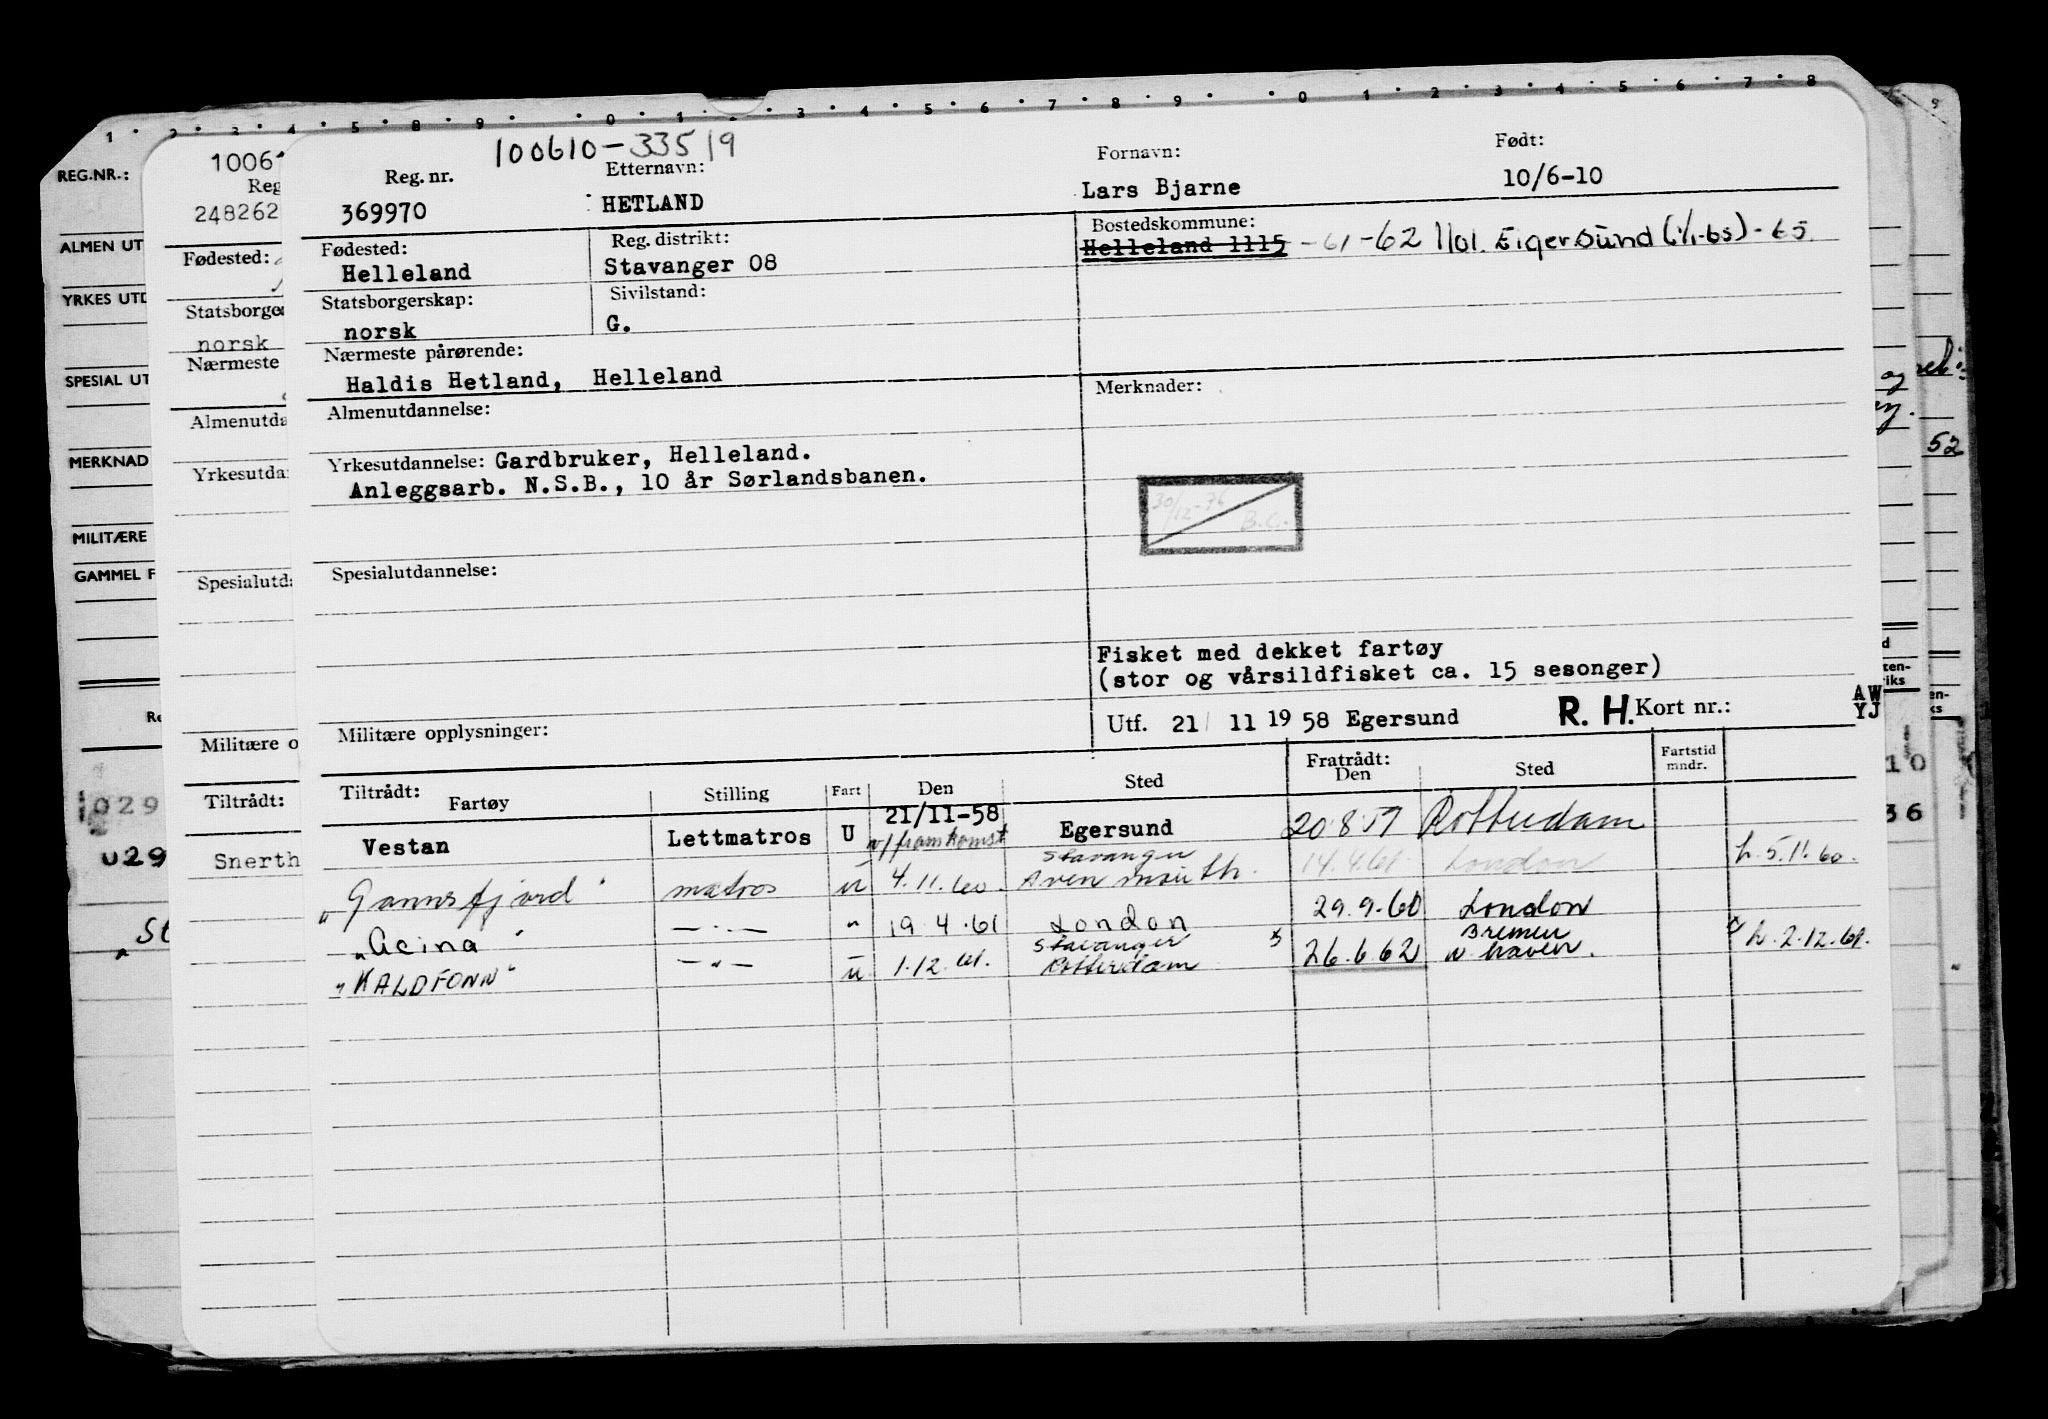 1 2 3 4 5 8 9 0 1 2 3 4 5 6 7 8 9 0 1 2 3 4 5 6 7 8 9
100610-33519
REG.NR.:
1006
Reg
248262
Reg. nr.
369970
Etternavn:
HETLAND
Fornavn:
Lars Bjarne
Født:
10/6-10
ALMEN UT
Fødested:
Fødested:
Helleland
Reg. distrikt:
Stavanger 08
Bostedskommune:
Helleland 1115 -61-62 1101. Eigersund (1/1-65) - 65.
YRKES UTD
Statsborge
norsk
Statsborgerskap:
norsk
Sivilstand:
G.
Nærmeste
Nærmeste pårørende:
Haldis Hetland, Helleland
SPESIAL UT
Almenutda
Almenutdannelse:
Merknader:
og
MERKNAD
52
Yrkesutda
Yrkesutdannelse: Gardbruker, Helleland.
Anleggsarb. N.S.B., 10 år Sørlandsbanen.
30/12-76 B.C.
MILITÆRE
GAMMEL F
Spesialutd
Spesialutdannelse:
Fisket med dekket fartøy
(stor og vårsildfisket ca. 15 sesonger)
Utf. 21/ 11 19 58 Egersund R. H. Kort nr.:
AW
YJ
Re
Militære o
Militære opplysninger:
Tiltrådt:
Tiltrådt:
Fartøy Stilling Fart Den Sted
Fratrådt:
Den Sted
Fartstid
mndr.
029
10
Vestan Lettmatros U 21/11-58 Egersund 20.8.59 Rotterdam
36
029
Snerth
v/framkomst
Stavanger
"Gannsfjord" matros u 4.11.60. Avenmouth. 14.4.61. London h. 5.11.60.
29.9.60 London
"Acina" —"— " 19.4.61 London
Stavanger
Bremen
"KALDFONN" —"— u 1.12.61. Rotterdam 26.6.62 v. haven. h. 2.12.61.